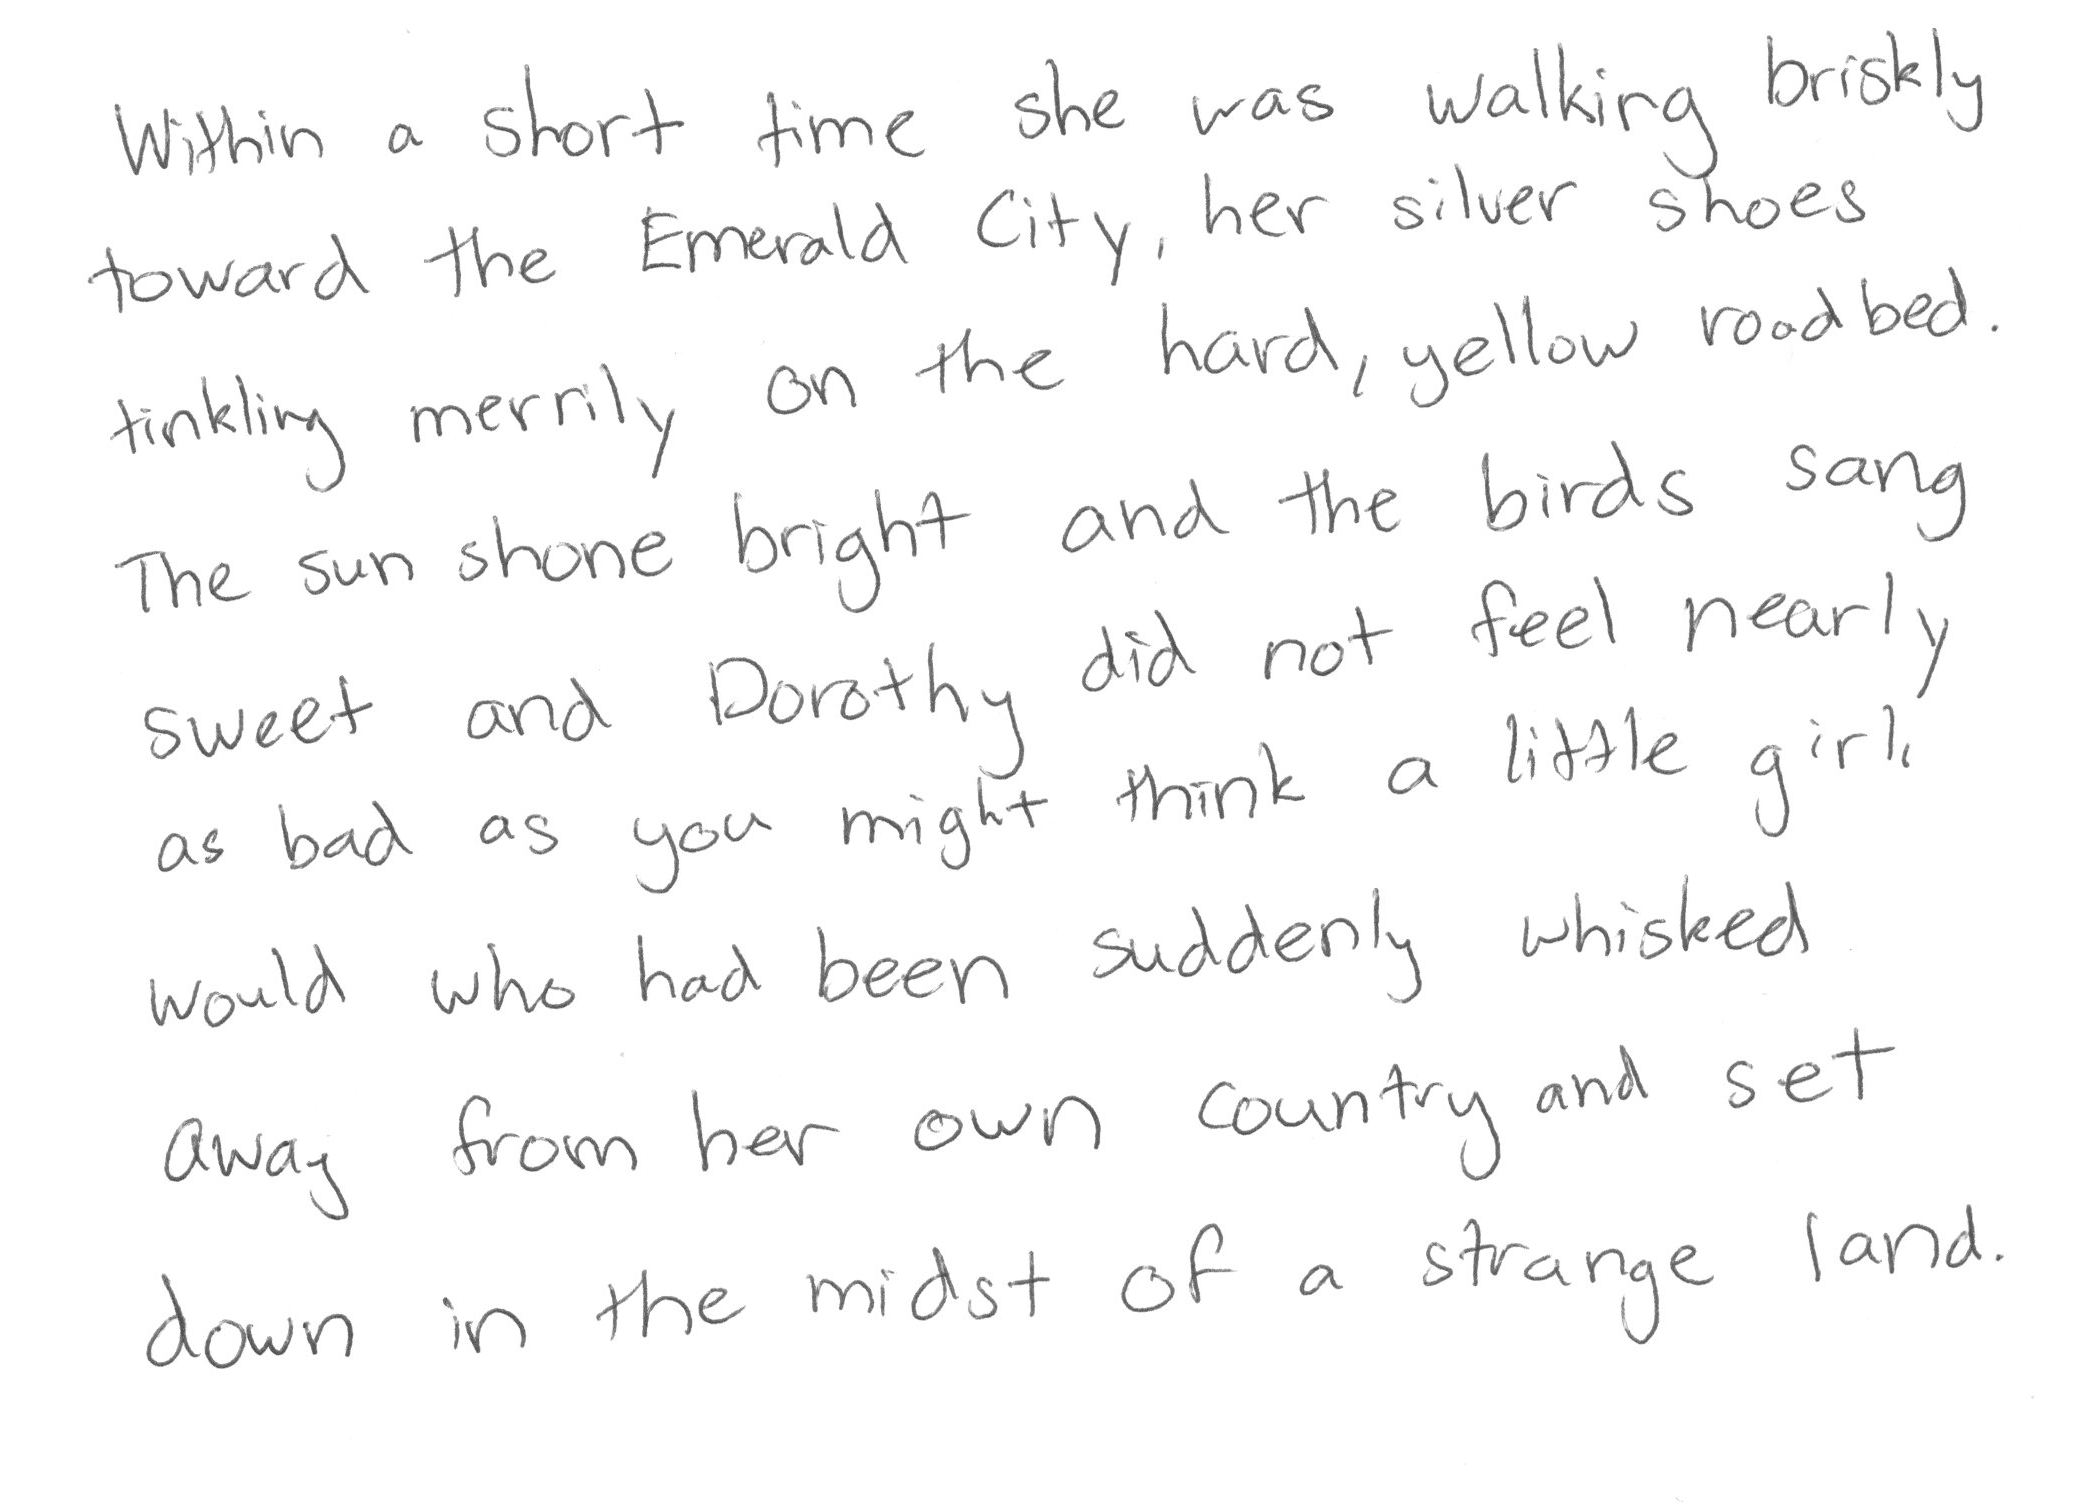 Within a short time she was walking briskly
toward the Emerald City, her silver shoes
tinkling merrily on the hard, yellow roadbed.
The sun shone bright and the birds sang
sweet and Dorothy did not feel nearly
as bad as you might think a little girl,
would who had been suddenly whisked
away from her own country and set
down in the midst of a strange land.